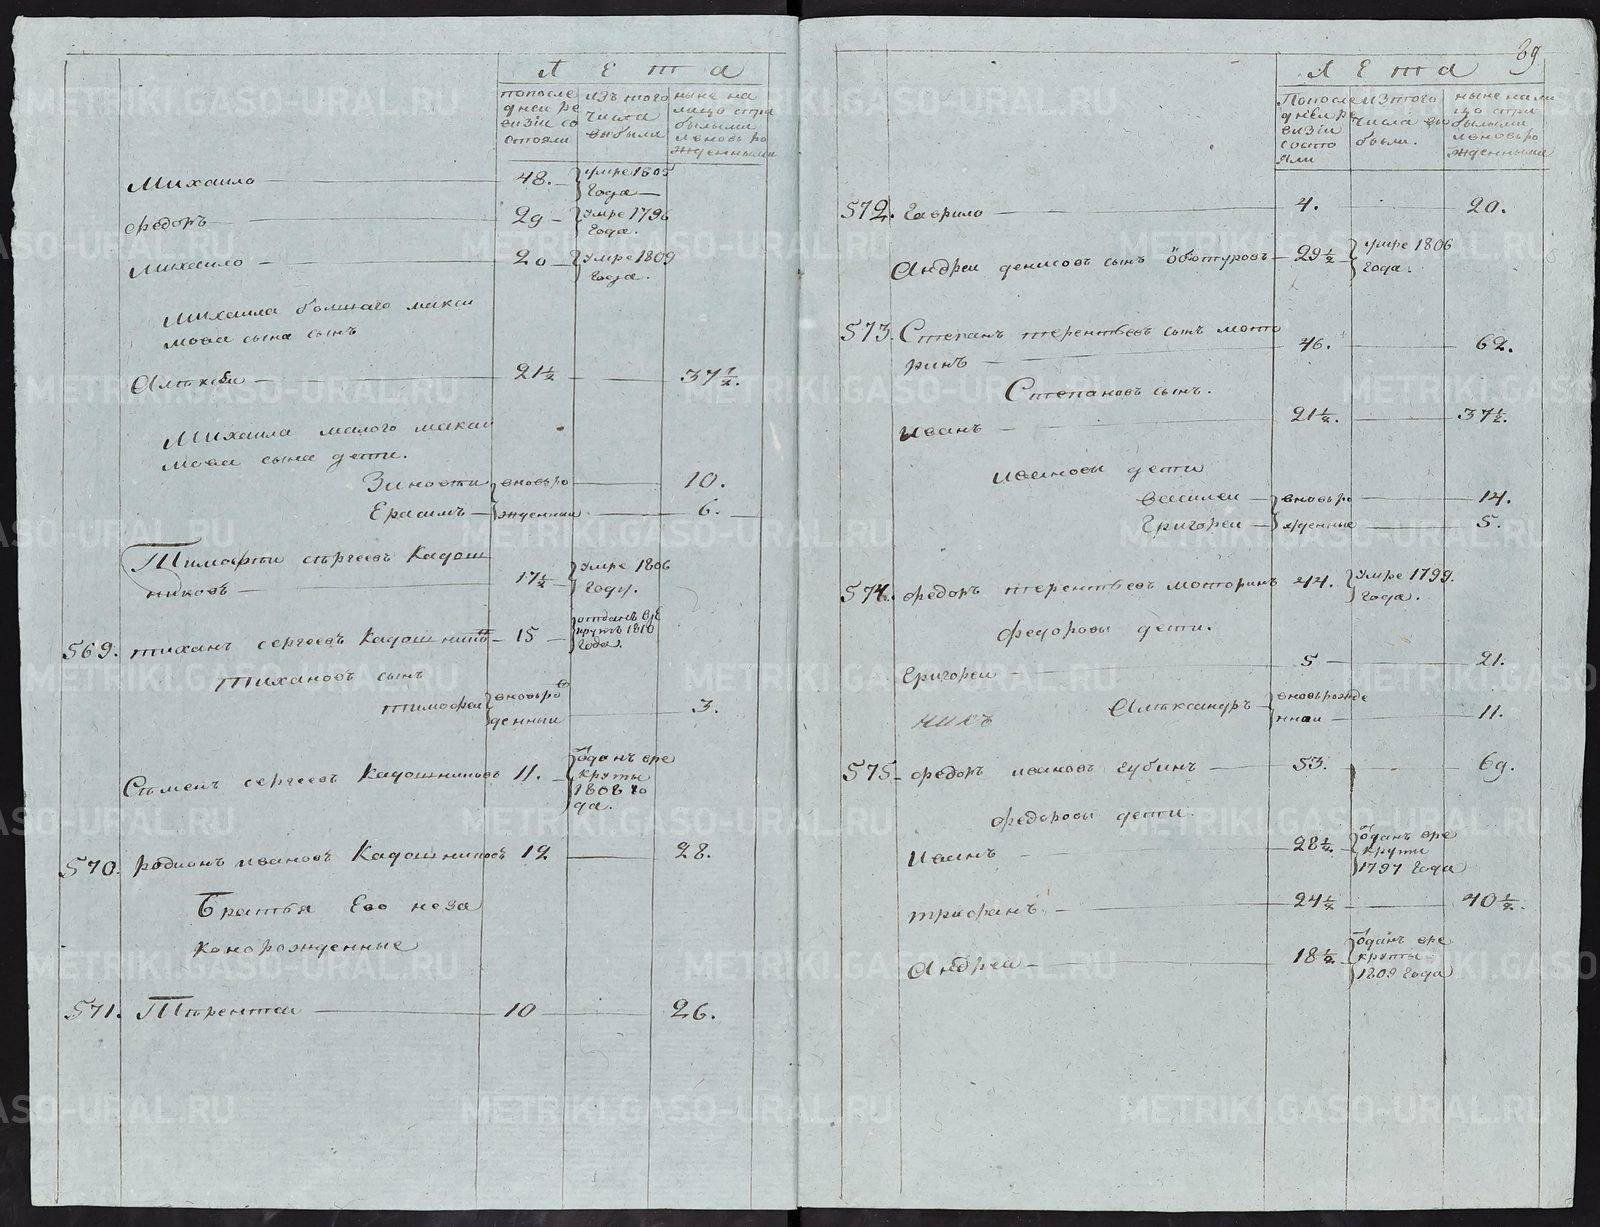 Лета
попосле
дней ре
визiи со
стояли
изъ того
числа
выбыли
ныне на
лицо стри
былыми
иновь ро
жденными
Михаило 48. умре 1805
года
Федоръ 29 умре 1796
года.
Михаило 20 умре 1809
года.
Михаила болшаго макси
мова сына сынъ
Алѣксѣи 21½ 37½.
Михаила малого макси
мова сына дети.
Зиновеи вновьро 10.
Ерасимъ жденныи 6.
Тимофѣи сѣргеевъ Кадош
никовъ 17½ умре 1806
году.
569. тиханъ сергеевъ Кадошниковъ 15 отданъ врѣ
круты 1810
года.
Тихановъ сынъ
тимофеи вновьро
жденныи 3.
Сѣменъ сергеевъ Кадошниковъ 11. Ѿданъ вре
круты
1808 го
да.
570. родионъ ивановъ Кадошниковъ 12 28.
Братья Его неза
конорожденные
571. Тѣрентеи 10 26.
39
Лета
Попосле
дней ре
визiи
состо
яли
изтого
числа вы
были.
ныне нали
цо стри
былыми
иновьро
жденными
572. Гаврило 4. 20.
Андреи денисовъ сынъ оботуровъ 29½ умре 1806
года.
573. Степанъ терентьевъ сынъ мото
ринъ 46. 62.
Степановъ сынъ.
Иванъ 21½. 37½.
ивановы дети
василеи вновьро 14.
Григореи жденные 5.
574. Федоръ терентьевъ моторинъ 44. умре 1799.
года.
Федоровы дети.
Григореи 5 21.
Алѣксандръ вновьрожде
ннаи 11.
575 Федоръ ивановъ губинъ 53. 69.
Федоровы дети.
Иванъ 28½. Ѿданъ вре
круты
1797 года
трифанъ 24½ 40½.
Андреи 18½ Ѿданъ вре
круты
1809 года
METRIKI.GASO-URAL.RU